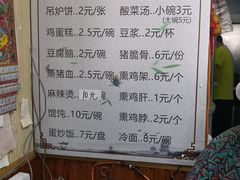 吊炉饼..2元/张 酸菜汤..小碗3元
(大碗5元)
鸡蛋糕..2.5元/碗 豆浆..2元/杯
豆腐脑..2元/碗 猪脆骨..6元/份
蒸猪血..2.5元/碗 熏鸡架..6元/个
麻辣烫..10元 熏鸡肝..1元/个
馄饨..10元/碗 熏鸡脖..2元/个
蛋炒饭..7元/盘 冷面..8元/碗